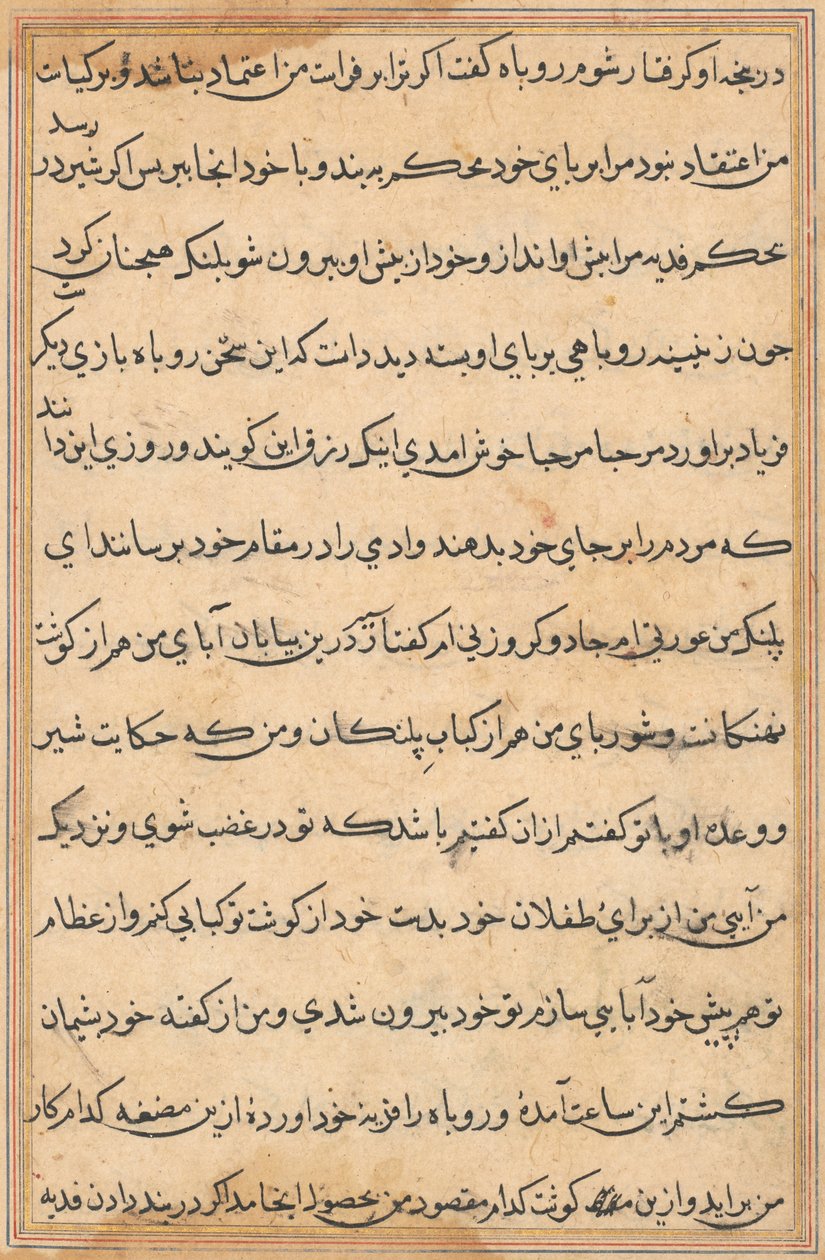 در پنجه او کرفتار شوم روباه کفت اکر ترا بر فراست من اعتماد بناشد و بر کیاست
من اعتقاد نبود مرا بر پاي خود محکم به بند و با خود انجا ببر بس اکر شیر در رسد
بحکم فدیه مرا بیش او انداز و خود از بیش او بیرون شو بلنک همجنان کرد
جون زن بیند روباهي بر باي او بسته دید دانست که این سخن روباه بازي دیکر ست
فریاد براورد مرحبا مرحبا خوش امدي اینک رزق این کویند و روزي این دا نند
که مردم را بر جاي خود بدهند و ادمي را در مقام خود برسانند اي
پلنک من عورتي ام جادو کر و زني ام کفتار آسیه درین بیابان آباي من هم از کوشت
نهنکانست و شورباي من هم از کباب پلنکان و من که حکایت شیر
و وعده او با تو کفتم از ان کفتم باشد که تو در غضب شوي و نزدیک
من آیي من از براي طفلان خود بدست خود از کوشت تو کبابي کنم و از عظام
تو هم پیش خود آبایي سازم تو خود بیرون شدي و من از کفته خود بشیمان
کشتم این ساعت آمدۀ و روباه را فزیه خود اوردۀ ازین مضغه کدام کار
من براید و ازین کوشت کدام مقصود من بحصول انجامد اکر در بند دادن فدیه